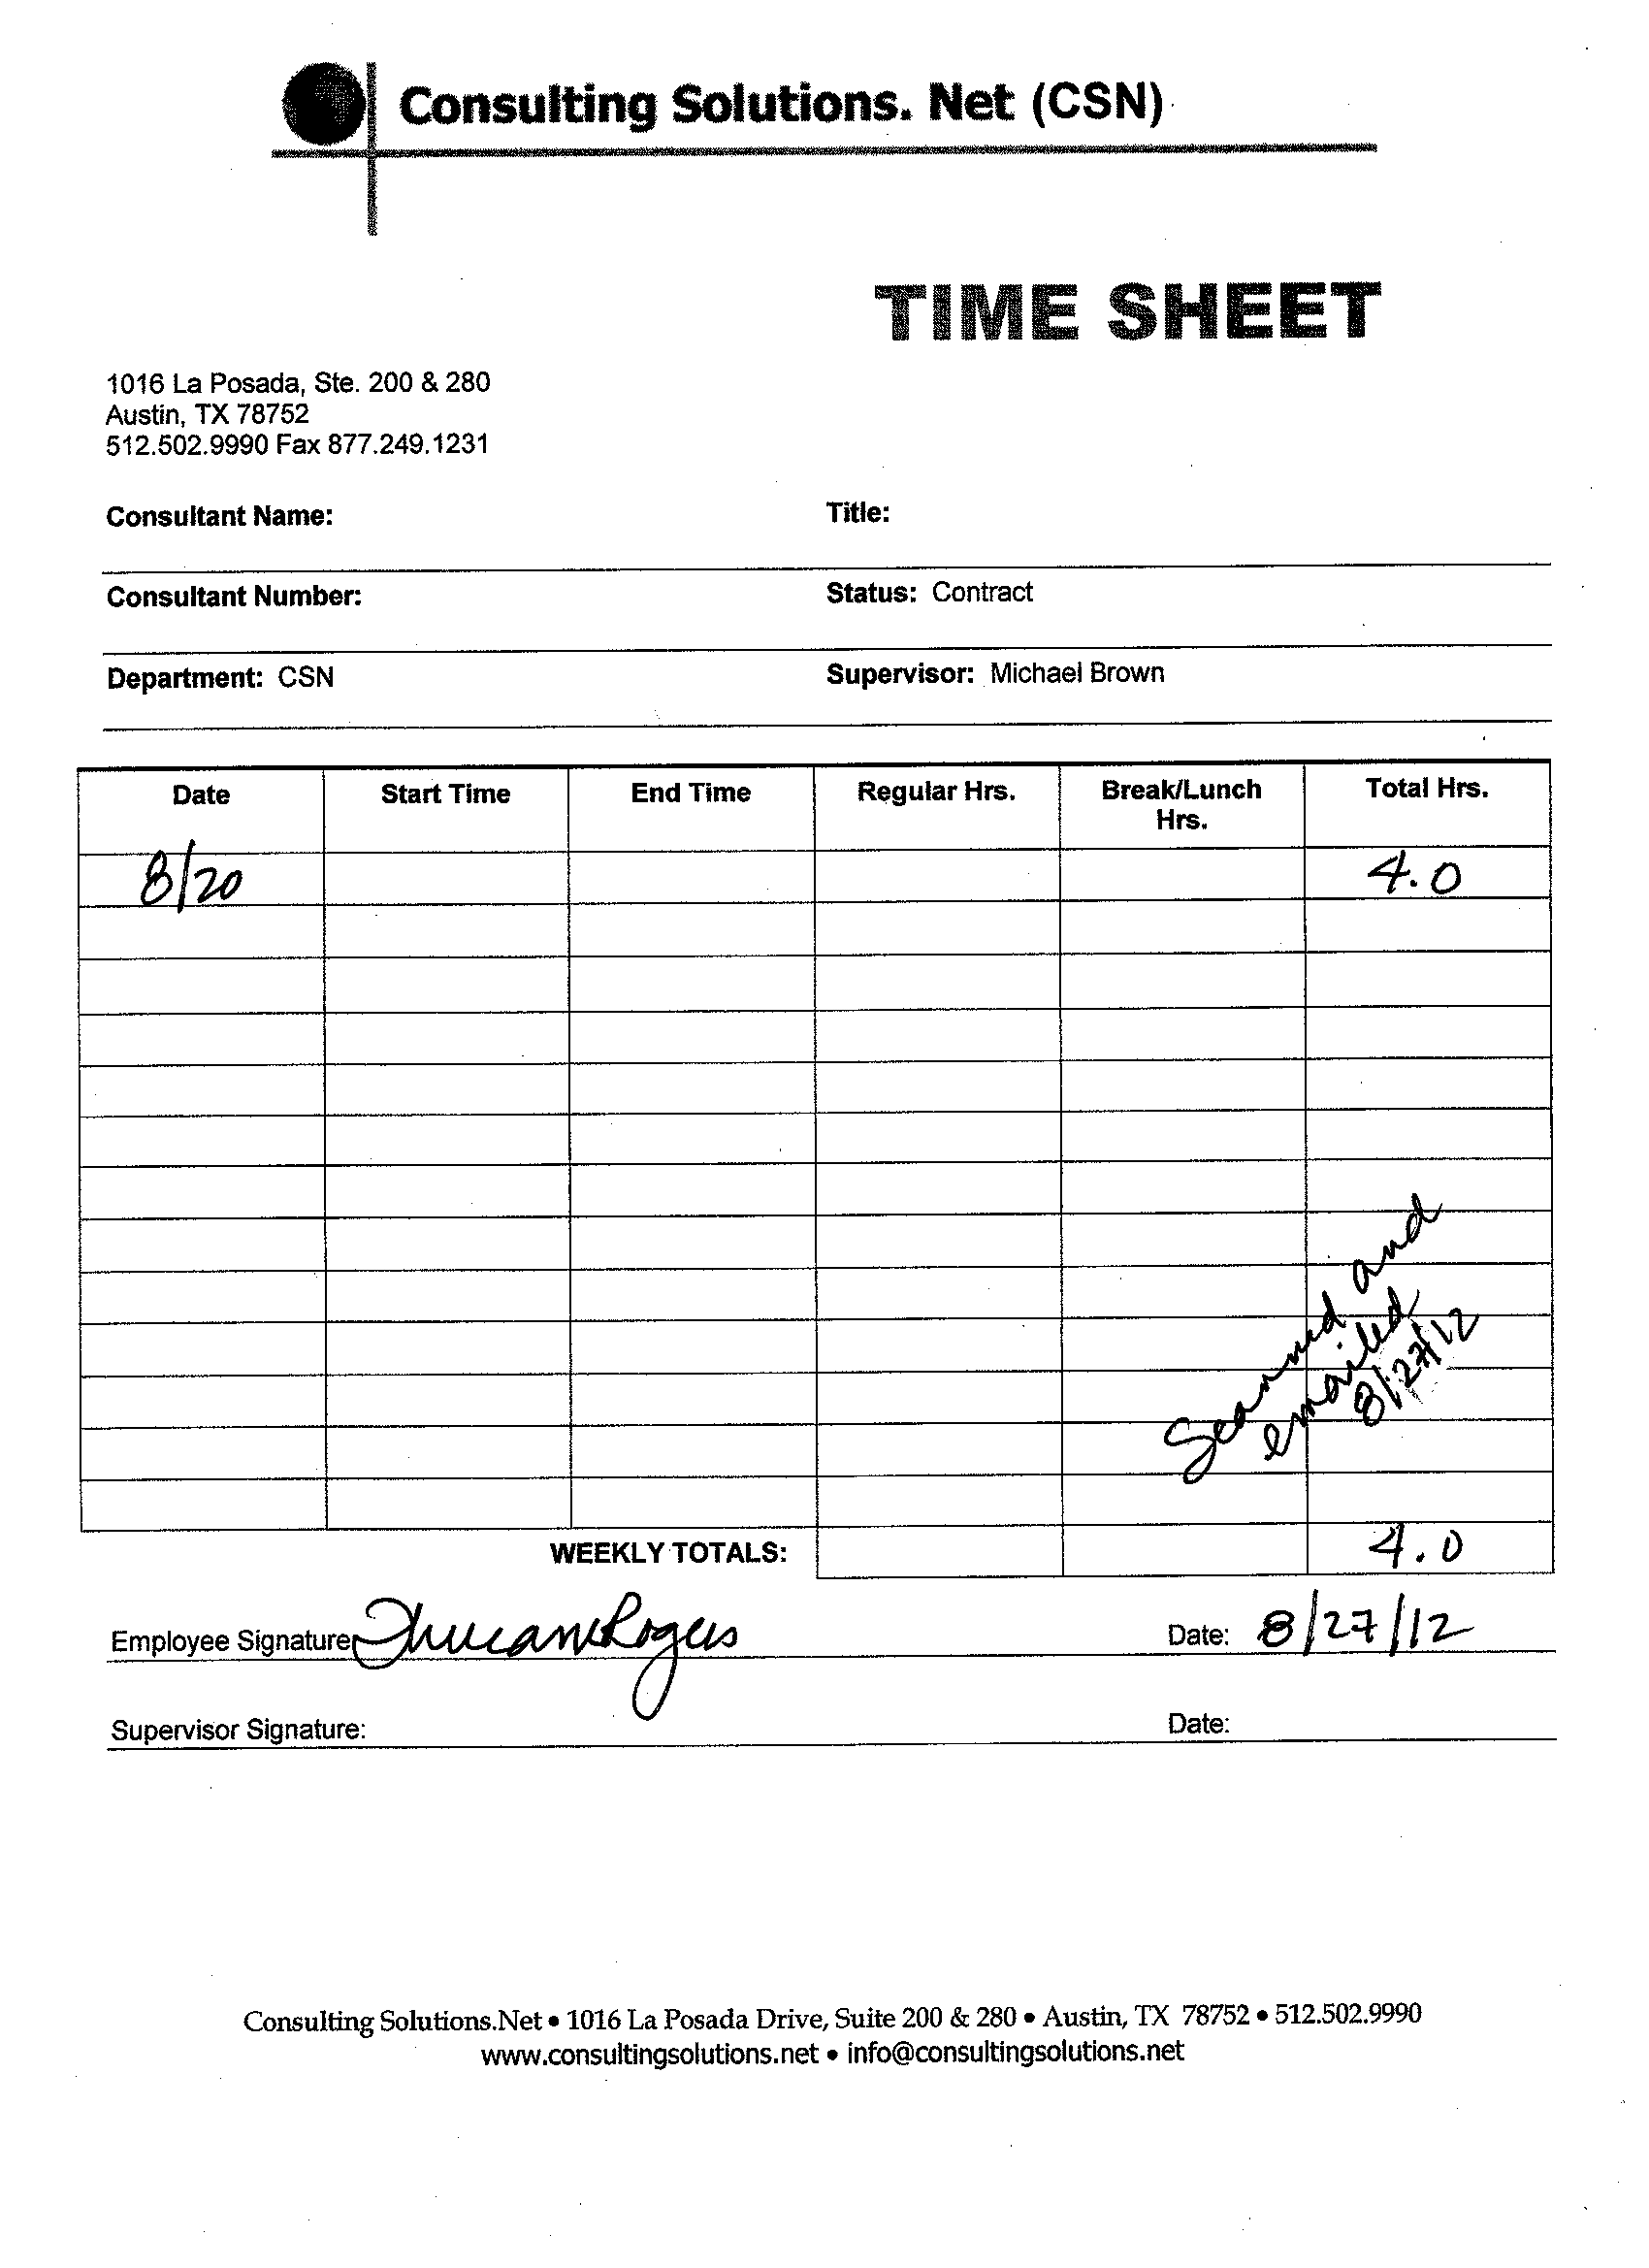 Consulting Solutions. Net (CSN)
TIME SHEET
1016 La Posada, Ste. 200 & 280
Austin, TX 78752
512.502.9990 Fax 877.249.1231
Consultant Name: Title:
Consultant Number: Status: Contract
Department: CSN Supervisor: Michael Brown
Date Start Time End Time Regular Hrs. Break/Lunch Hrs. Total Hrs.
8/20 4.0
Scanned and
emailed
8/27/12
WEEKLY TOTALS: 4.0
Employee Signature Rogers Date: 8/27/12
Supervisor Signature: Date:
Consulting Solutions.Net • 1016 La Posada Drive, Suite 200 & 280 • Austin, TX 78752 • 512.502.9990
www.consultingsolutions.net • info@consultingsolutions.net